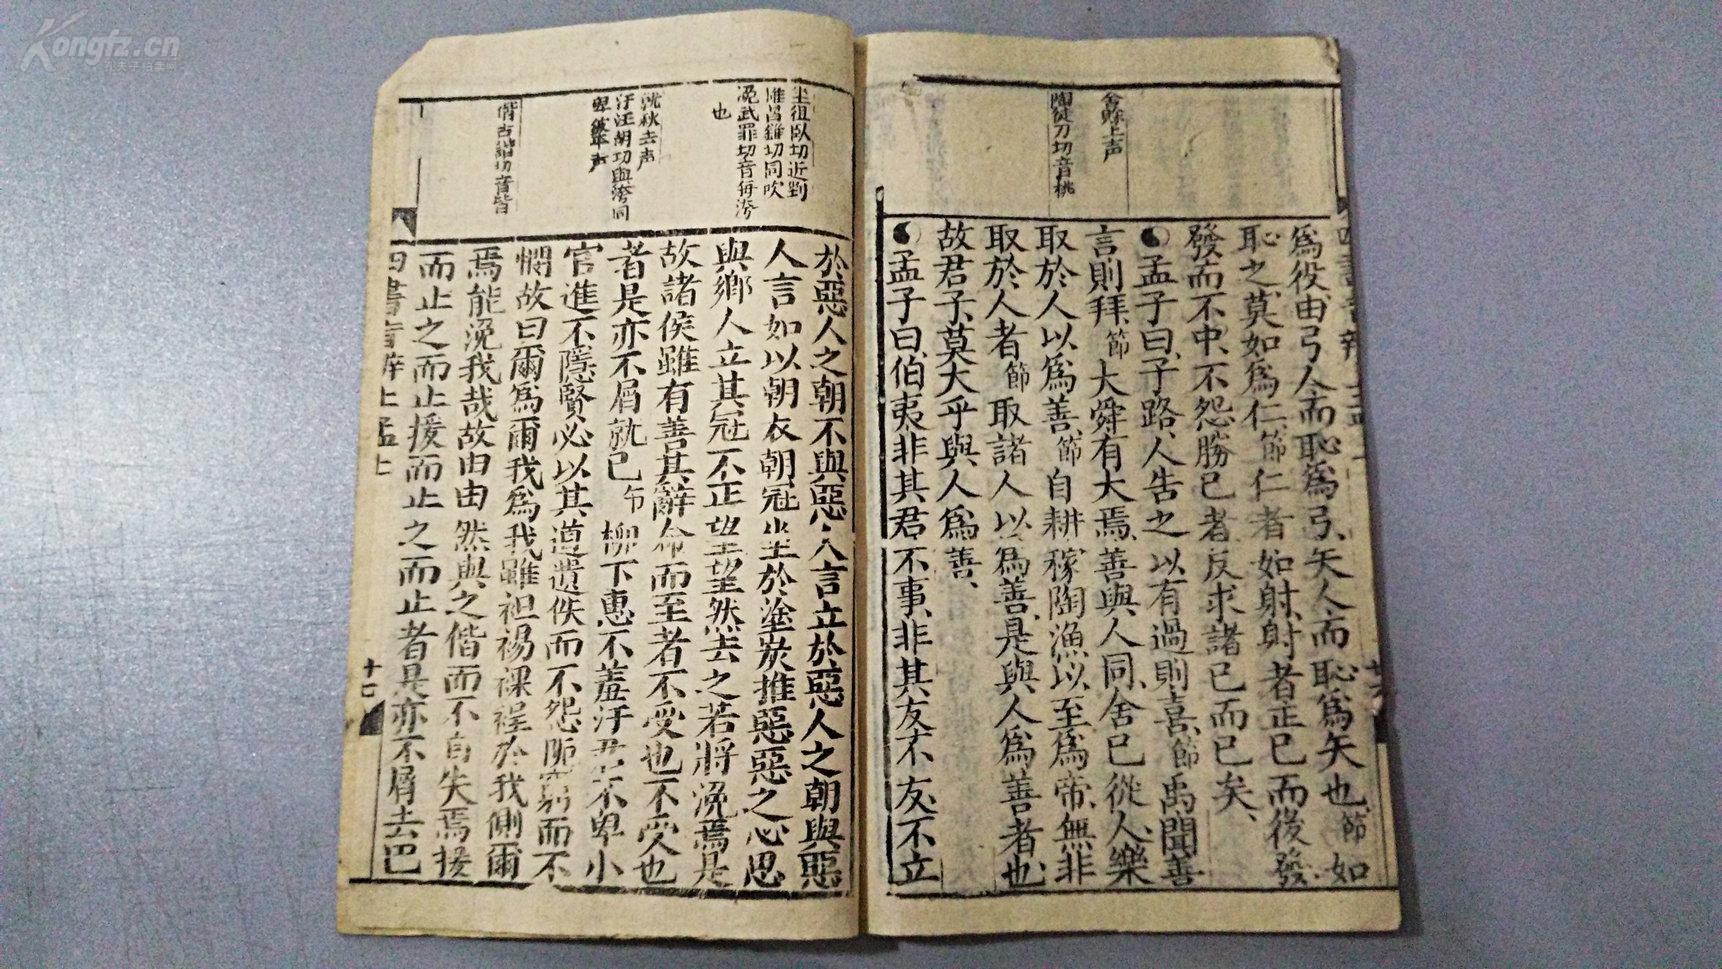 Kongfz.cn
舍縣上声
陶徒刀切音桃
爲役由弓人而恥爲弓矢人而恥爲矢也節如
恥之莫如爲仁節仁者如射射者正已而後發
發而不中不怨勝已者反求諸已而已矣
孟子曰子路人告之以有過則喜節禹聞善
言則拜節大舜有大焉善與人同舍已從人樂
取於人以爲善節自耕稼陶漁以至爲帝無非
取於人者節取諸人以爲善是與人爲善者也
故君子莫大乎與人爲善
孟子曰伯夷非其君不事非其友不友不立
坐徂臥切近
推昌錐切同吹
浼武罪切音每
也
就秋去声
汙汪胡切與洿同
偕古諧切音皆
於惡人之朝不與惡人言立於惡人之朝與惡
人言如以朝衣朝冠坐於塗炭推惡惡之心思
與鄉人立其冠不正望望然去之若將浼焉是
故諸侯雖有善其辭命而至者不受也不受也
者是亦不屑就已節柳下惠不羞汙君不卑小
官進不隱賢必以其道遺佚而不怨阨窮而不
憫故曰爾爲爾我爲我雖袒裼裸裎於我側爾
焉能浼我哉故由由然與之偕而不自失焉援
而止之而止援而止之而止者是亦不屑去巴
四書音辨上孟上
十七